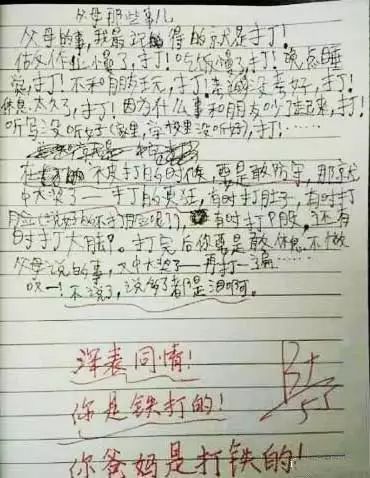 父母那些事儿
父母的事,我最记得的就是打!
估作业慢了,打!吃饭慢了,打!晚点睡
觉,打!不和朋友玩,打!考试没考好,打!
休息太久了,打!因为什么事和朋友吵了起来,打!
听写没听好(家里,学校里没听好),打!……
在不皮打的时候,要是敢防守,那就
中大奖了——打的更狂,有时打肚子,有时打
脸(说好的不打脸呢??),有时打P股,还有
时打大腿。打完后你要是敢休息不做
父母说的事,又中大奖了——再打一遍……
哎——!不说了,说多了都是泪啊。
深表同情!
你是铁打的!
你爸妈是打铁的!
B+